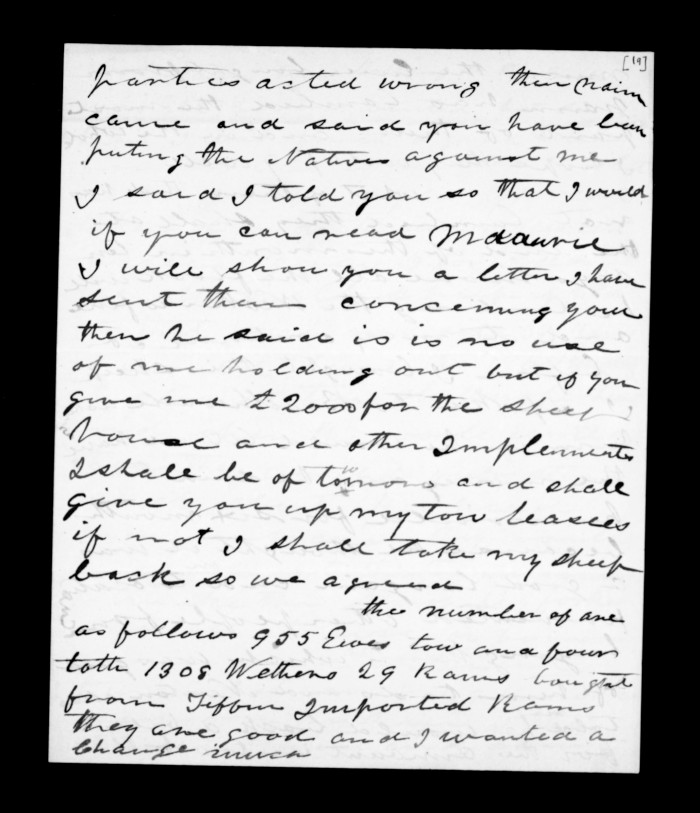 [19]
parties acted wrong then Nairn
came and said you have been
puting the Natives against me
I said I told you so that I would
if you can read Maaurie
I will show you a letter I have
sent them concerning your
then he said is is no use
of me holding out but if you
give me £2000 for the sheep
house and other Implements
I shall be of tomoro and shall
give you up my tow leasees
if not I shall take my sheep
back so we agreed
the number of are
as follows 955 Ewes tow and four
toth 1308 Wethers 29 Rams bought
from Tiffin Imported Rams
they are good and I wanted a
change much